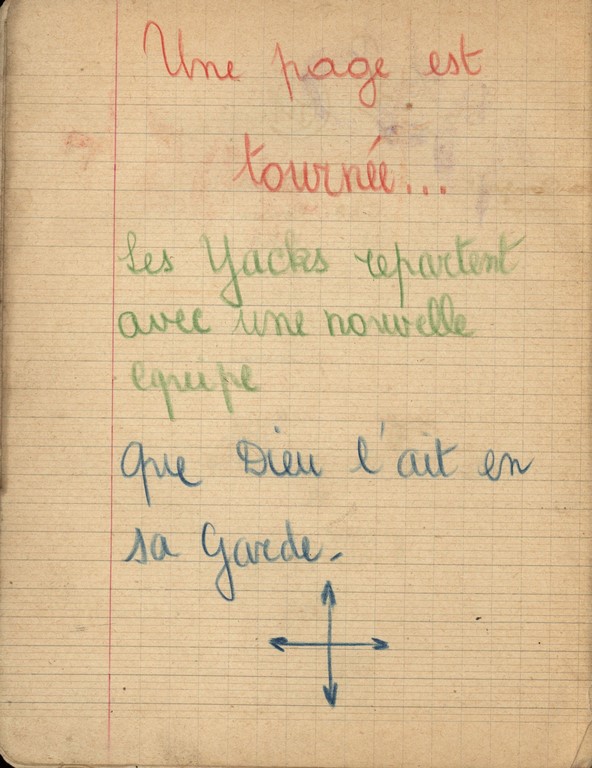 Une page est
tournée...
Les Yacks repartent
avec une nouvelle
equipe
que Dieu l'ait en
sa Garde.